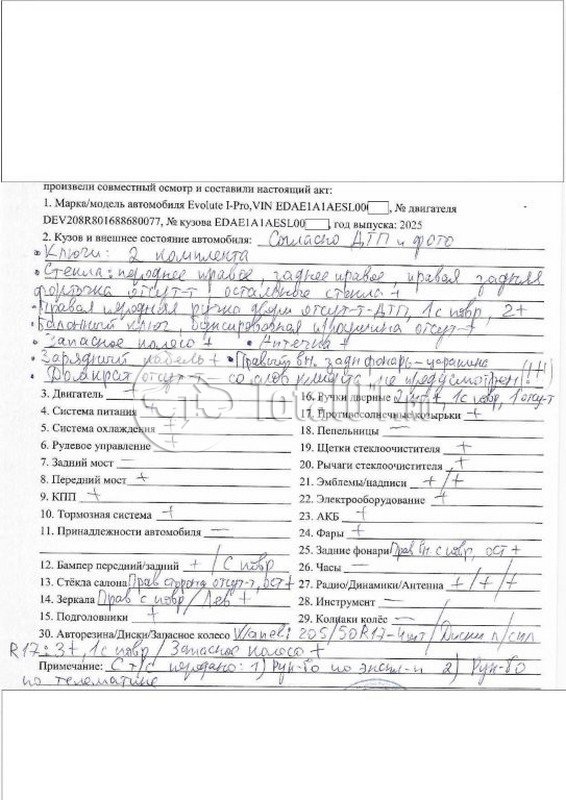 произвели совместный осмотр и составили настоящий акт:
1. Марка/модель автомобиля Evolute I-Pro,VIN EDAE1A1AESL00, № двигателя
DEV208R801688680077, № кузова EDAE1A1AESL00, год выпуска: 2025
2. Кузов и внешнее состояние автомобиля: Согласно ДТП и фото
• Ключи: 2 комплекта
• Стекла: переднее правое, заднее правое, правая задняя
форточка отсут-т остальные стекла +
• Правая передняя ручка двери отсут-т-ДТП, 1 с повр, 2+
• Балонный ключ, буксировочная проушина отсут-т
• Запасное колесо + • Аптечка +
• Зарядный кабель + • Правый вн. задн фонарь-царапина
• Домкрат отсут-т со слов клиента "не предусмотрен" (!!!)
3. Двигатель + 16. Ручки дверные 2 шт +, 1 с повр, 1 отсут-т
4. Система питания + 17. Противосолнечные козырьки +
5. Система охлаждения + 18. Пепельницы —
6. Рулевое управление + 19. Щетки стеклоочистителя +
7. Задний мост — 20. Рычаги стеклоочистителя +
8. Передний мост + 21. Эмблемы/надписи +/+
9. КПП + 22. Электрооборудование +
10. Тормозная система + 23. АКБ +
11. Принадлежности автомобиля — 24. Фары +
25. Задние фонари Прав вн с повр, ост +
12. Бампер передний/задний + / С повр 26. Часы —
13. Стёкла салона Прав сторона отсут-т, ост + 27. Радио/Динамики/Антенна +/+/+
14. Зеркала Прав с повр/Лев + 28. Инструмент —
15. Подголовники + 29. Колпаки колёс —
30. Авторезина/Диски/Запасное колесо 205/50 R17-4шт/Диски
R17: 3+, 1 с повр / Запасное колесо +
Примечание: С т/с передано: 1) Рук-во по экспл-и 2) Рук-во
по телематике